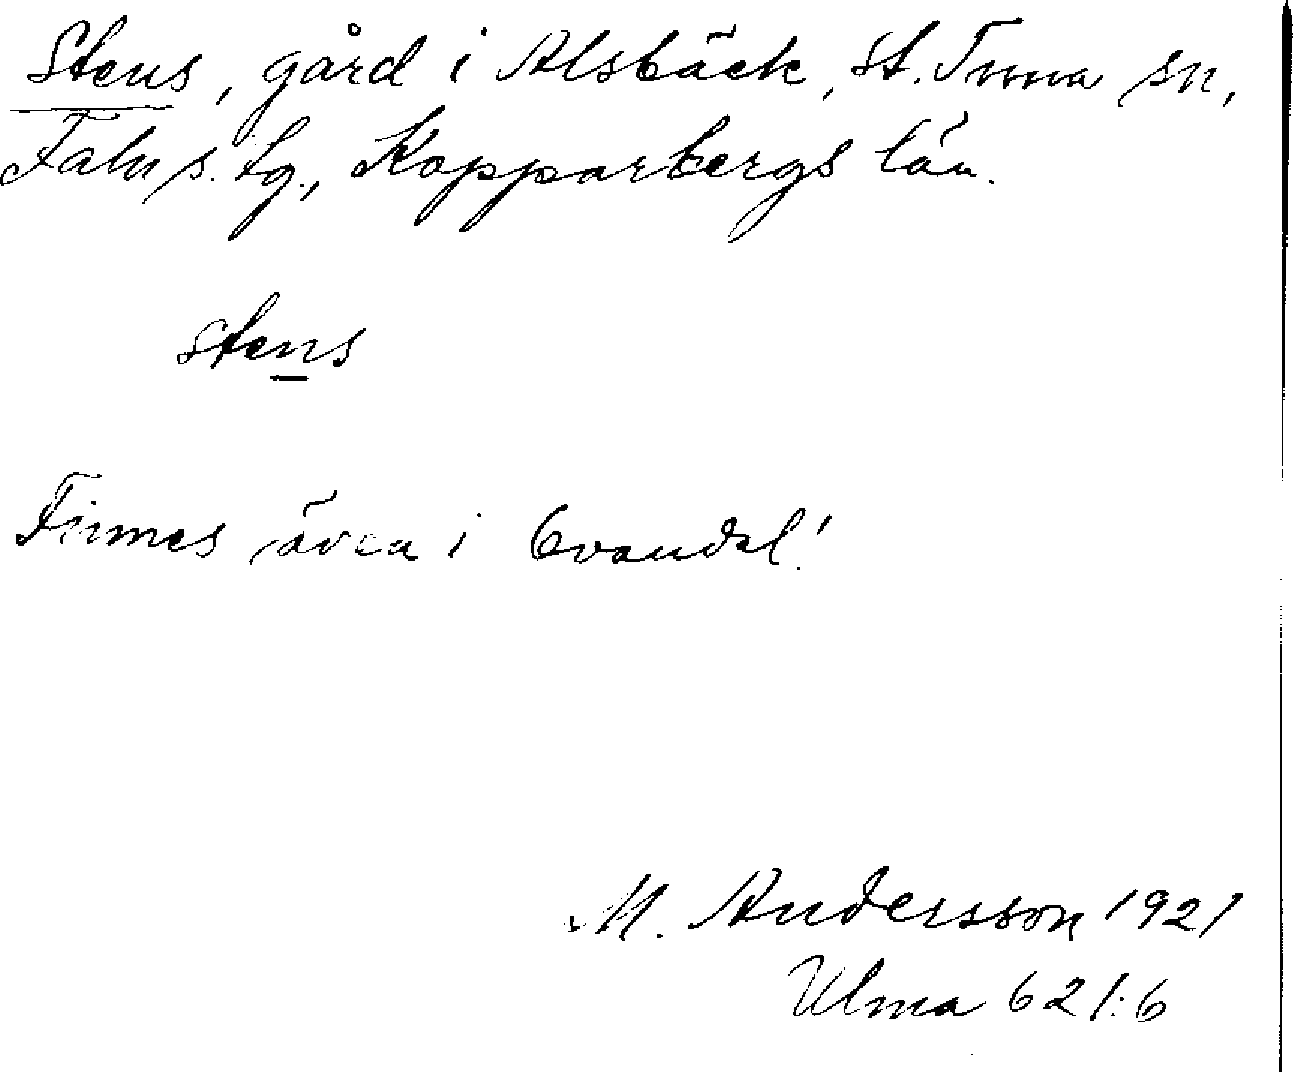 Stens, gård i Alsbäck, St. Tuna sn,
Falu s. tg., Kopparbergs län.
stens
Finnes även i Ovandal!
M. Andersson 1921
Ulma 621:6